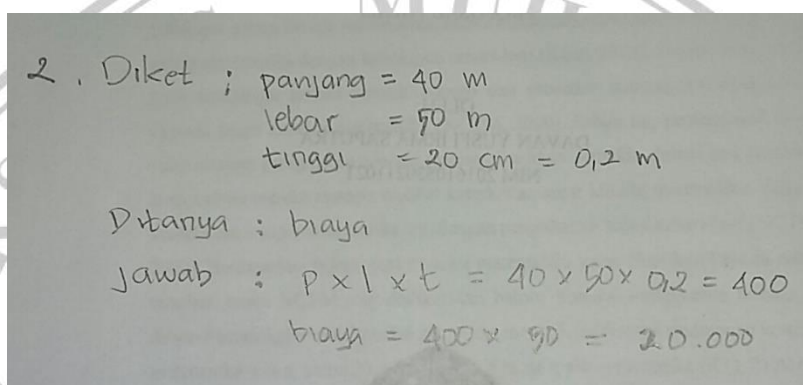 2. Diket : panjang = 40 m
lebar = 50 m
tinggi = 20 cm = 0,2 m
Ditanya : biaya
Jawab : p x l x t = 40 x 50 x 0,2 = 400
biaya = 400 x 50 = 20.000